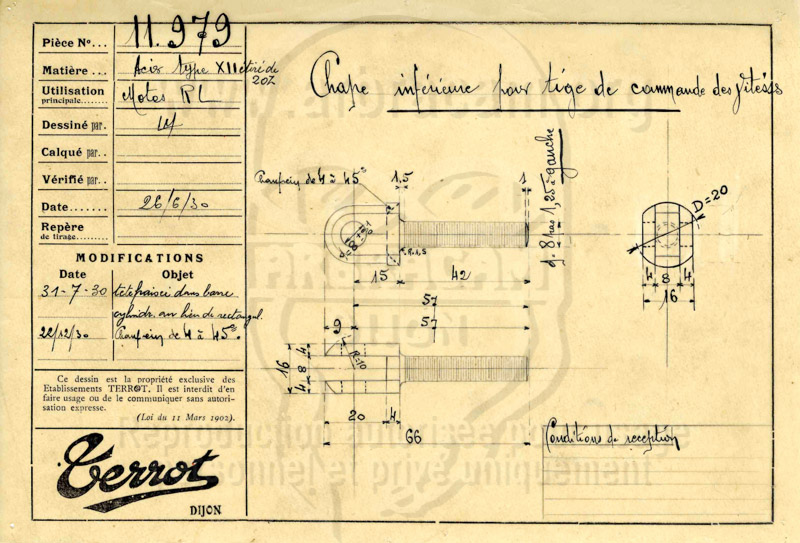 Pièce Nº... 11.979
Matière ... Acier type XII étiré de
20Z
Utilisation
principale........ Motos RL
Dessiné par.
Calqué par..
Vérifié par..
Date........ 26/6/30
Repère
de tirage......
MODIFICATIONS
Date Objet
31-7-30 tête fraisée dans barre
cylindr. au lieu de rectangul.
22/12/30 Chanfrein de 4 à 45º
Ce dessin est la propriété exclusive des
Etablissements TERROT. Il est interdit d'en
faire usage ou de le communiquer sans autori-
sation expresse.
(Loi du 11 Mars 1902.)
Terrot
DIJON
Chape inférieure pour tige de commande des vitesses
Chanfrein de 4 à 45º
1,5
1
d. 8 pas 1,25 à gauche
R.1,5
15
42
57
57
D=20
4 8 4
16
9
R=10
16
4 8 4
20
4
66
Conditions de réception
Reproduction autorisée pour usage
personnel et privé uniquement